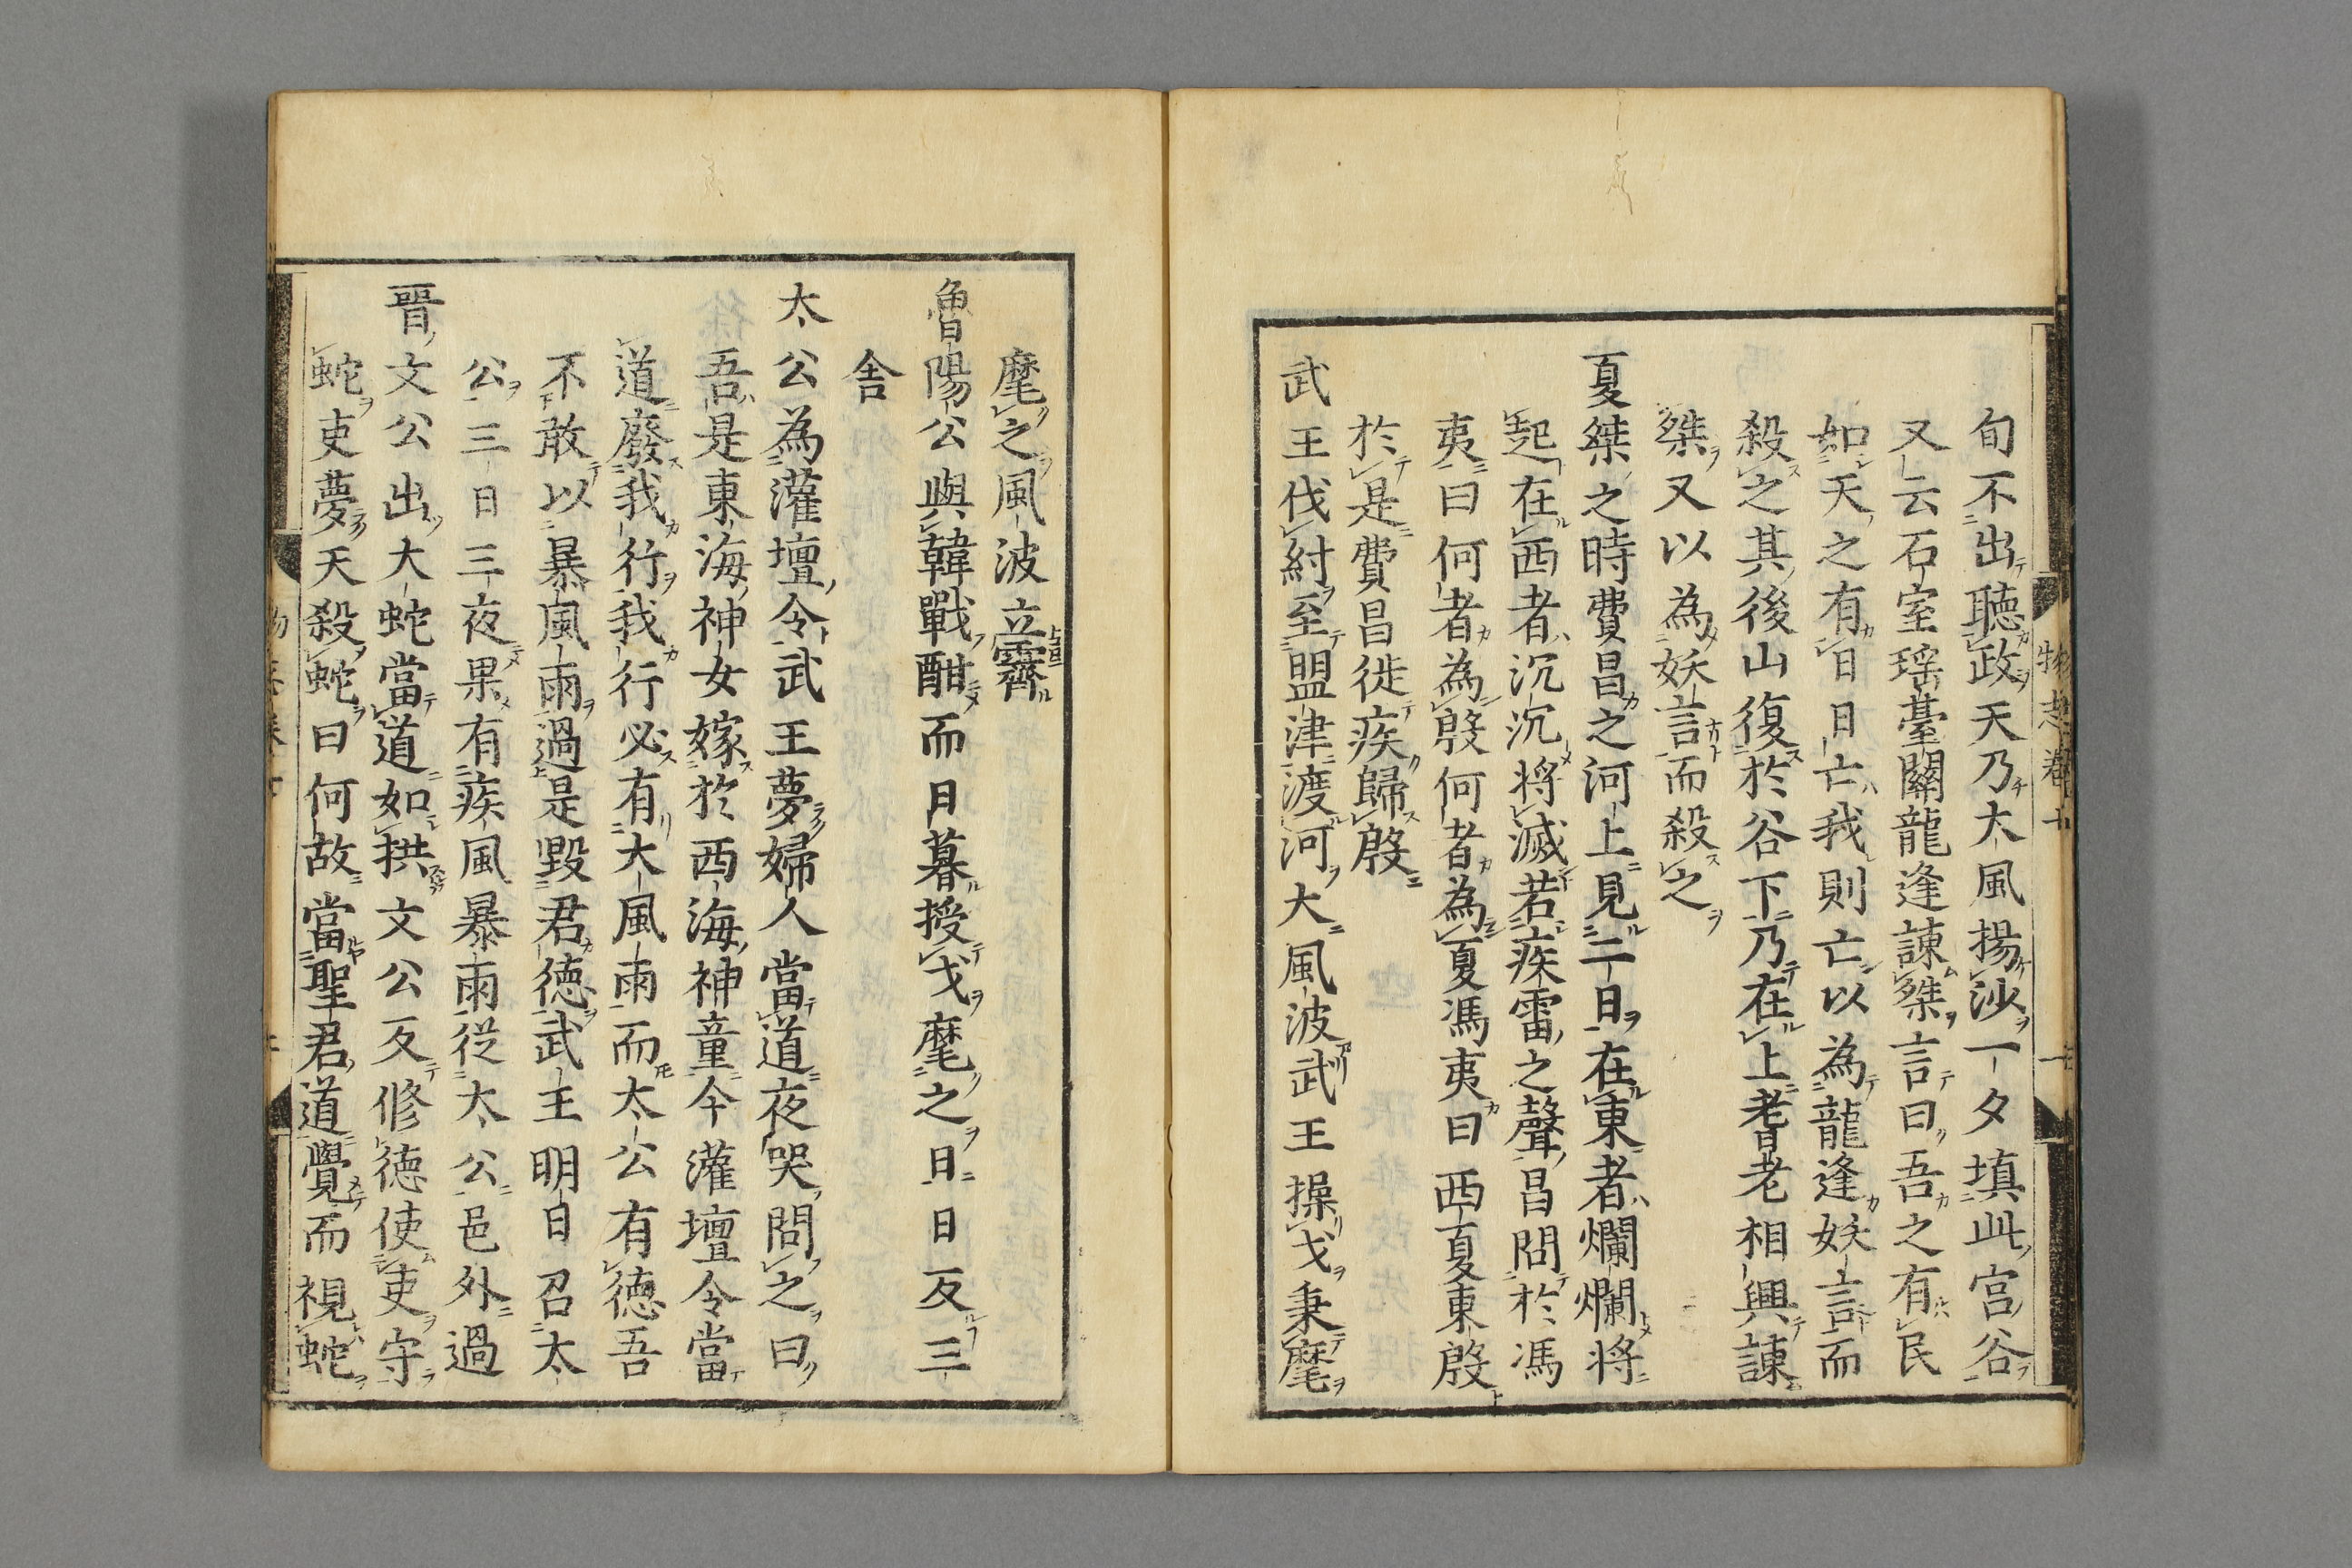 旬不出聴政天乃大風揚沙一夕填此宮谷
又云石室瑶臺關龍逢諌桀言曰吾之有民
如天之有日日亡我則亡以為龍逢妖言而
殺之其後山復於谷下乃在上耆老相與諌
桀又以為妖言而殺之
夏桀之時費昌之河上見二日在東者爛爛將
起在西者沉沉将滅若疾雷之聲昌問於馮
夷曰何者為殷何者為夏馮夷曰西夏東殷
於是費昌徙疾歸殷
武王伐紂至盟津渡河大風波武王操戈秉麾
麾之風波立霽
魯陽公與韓戰酣而日暮授戈麾之日日反三
舎
太公為灌壇令武王夢婦人當道夜哭問之曰
吾是東海神女嫁於西海神童今灌壇令當
道廢我行我行必有大風雨而太公有徳吾
不敢以暴風雨過是毀君徳武王明日召太
公三日三夜果有疾風暴雨従太公邑外過
晋文公出大蛇當道如拱文公反修徳使吏守
蛇吏夢天殺蛇曰何故當聖君道覺而視蛇